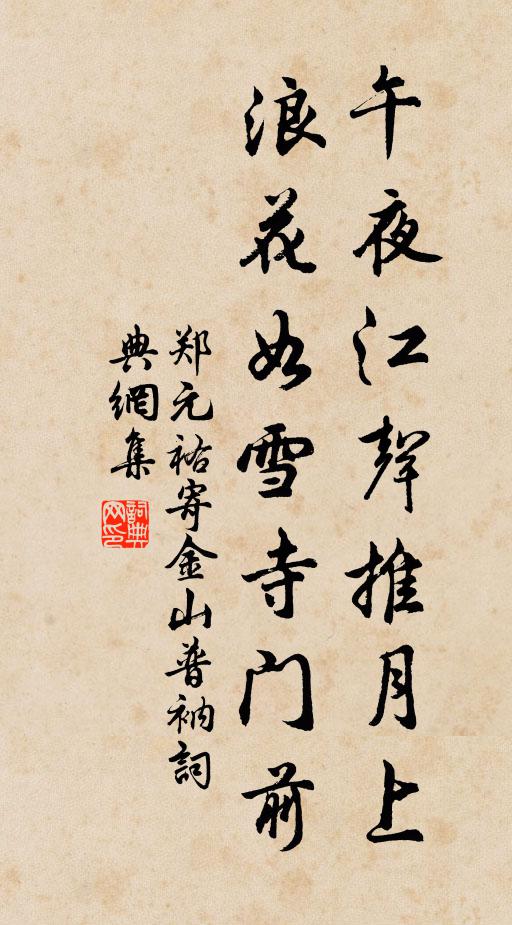 午夜江聲推月上
浪花如雪寺门前
郑元祐寄金山普衲詞
典網集
詞典网印